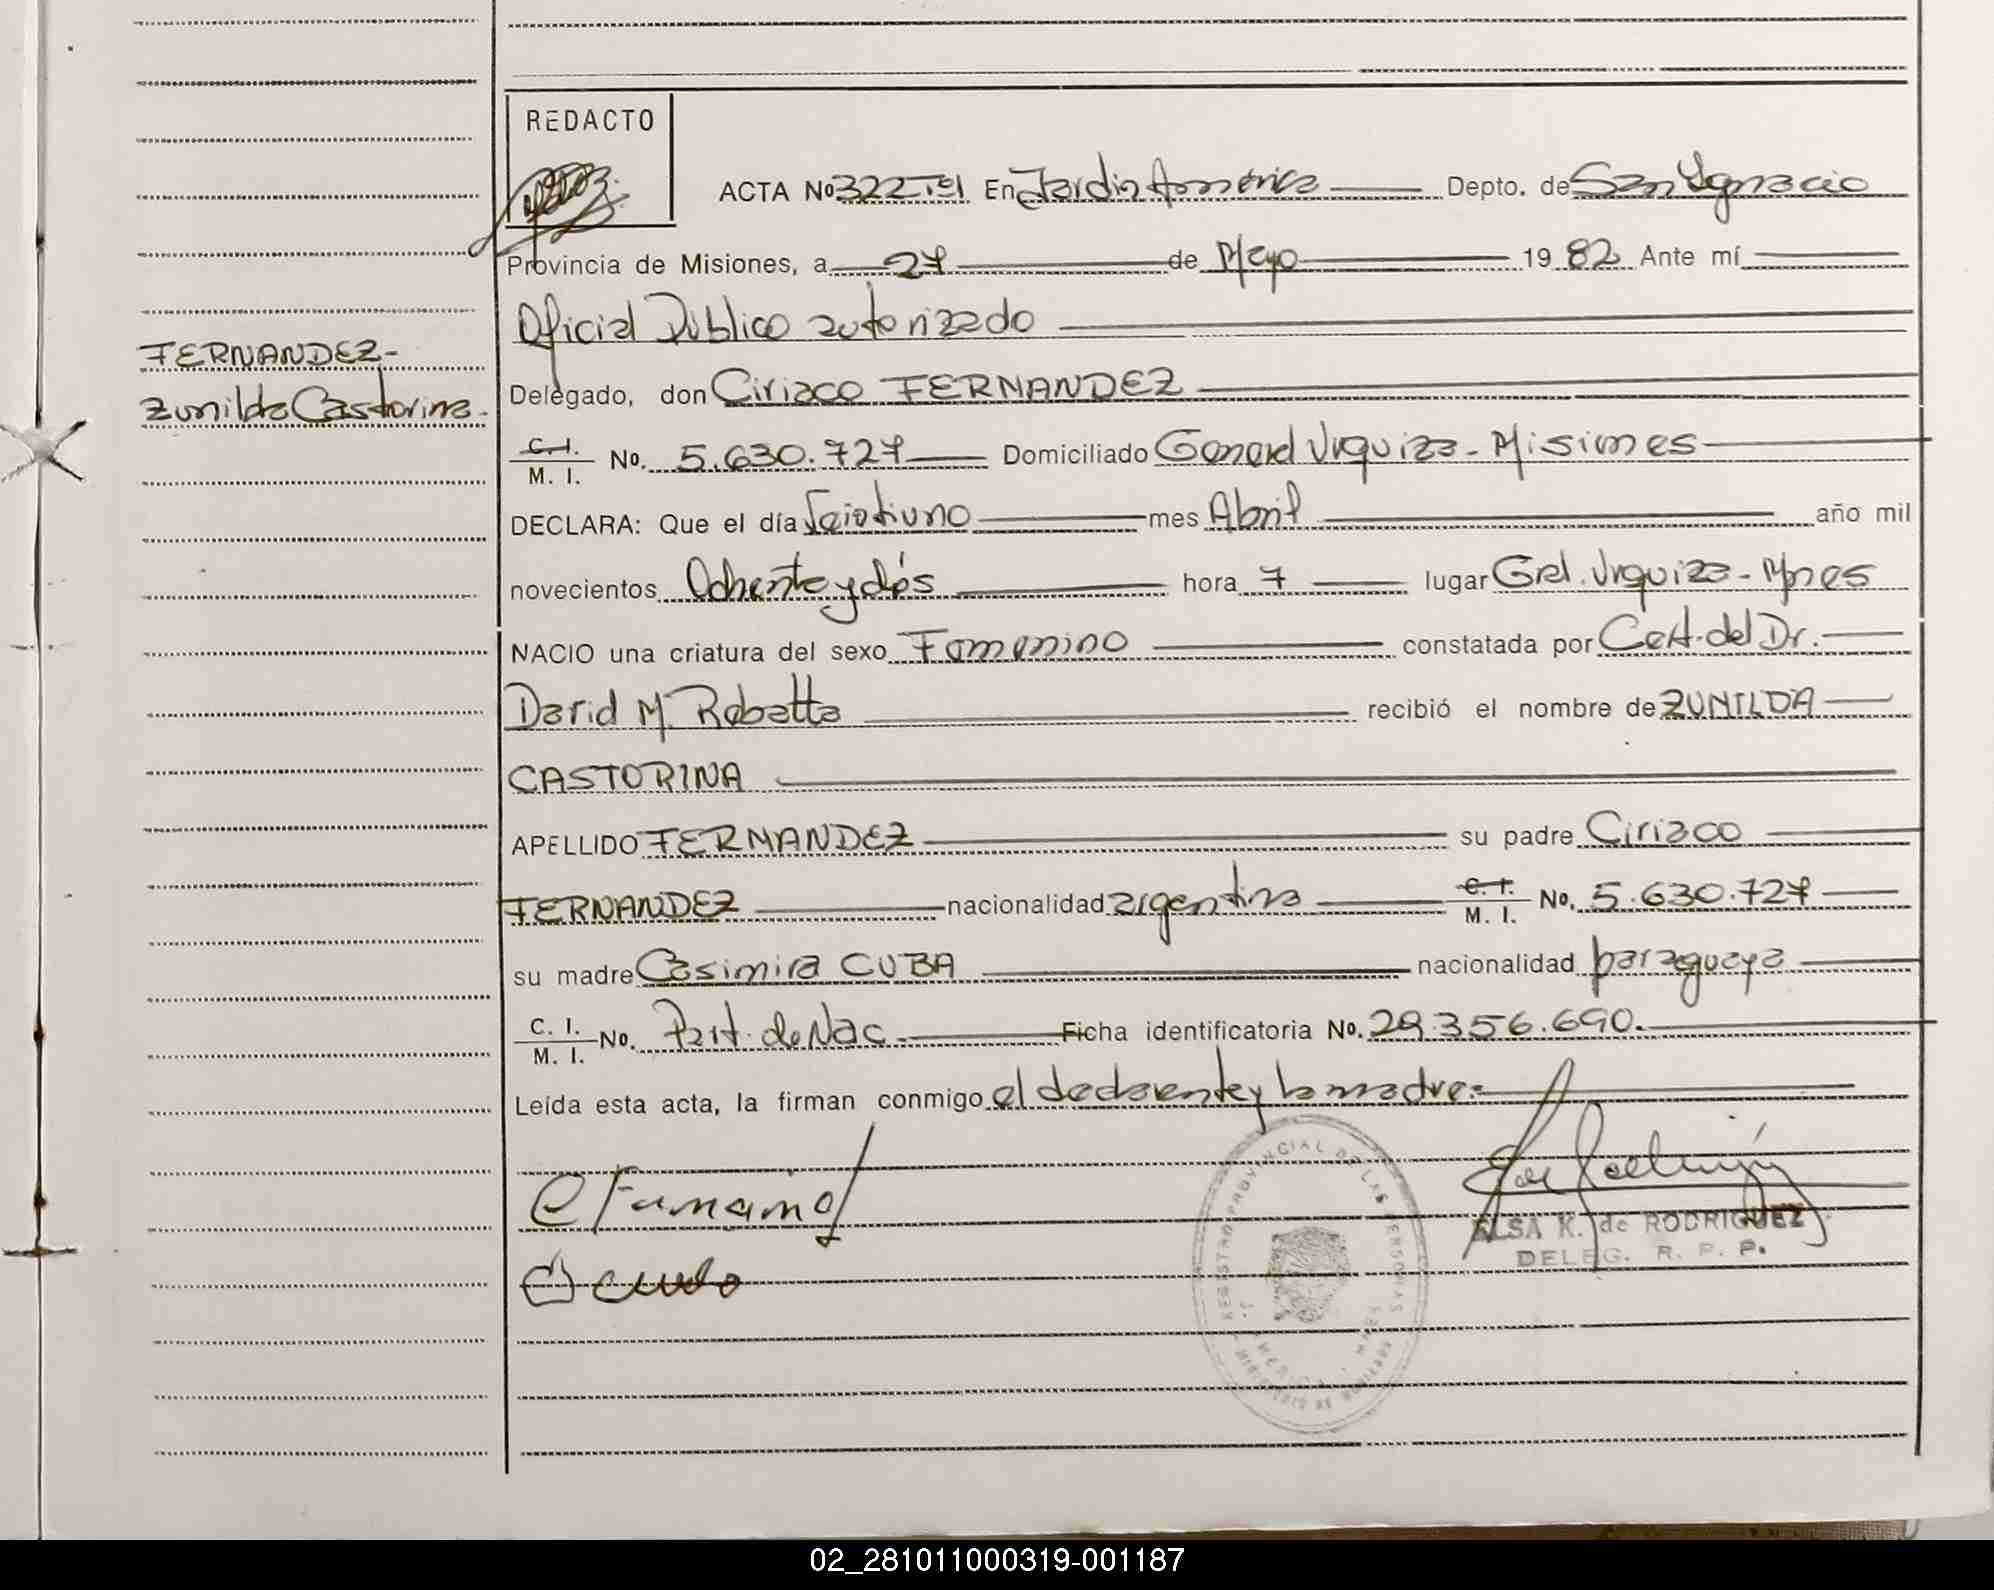 REDACTO
ACTA No 322 TºI En Jardin America Depto. de San Ignacio
Provincia de Misiones, a 27 de Mayo 19 82 Ante mí
Oficial Público autorizado
FERNANDEZ-
Zunilda Castorina.
Delegado, don Ciriaco FERNANDEZ
C. I.
M. I. No. 5.630.727 Domiciliado General Urquiza - Misiones
DECLARA: Que el día Veintiuno mes Abril año mil
novecientos Ochenta y dós hora 7 lugar Gral. Urquiza - Mnes
NACIO una criatura del sexo Femenino constatada por Cert. del Dr.
David M. Rebatta recibió el nombre de ZUNILDA
CASTORINA
APELLIDO FERNANDEZ su padre Ciriaco
FERNANDEZ nacionalidad argentina C. I.
M. I. No. 5.630.727
su madre Casimira CUBA nacionalidad paraguaya
C. I.
M. I. No. Part. de Nac Ficha identificatoria No. 29.356.690.
Leída esta acta, la firman conmigo el declarente y la madre:
REGISTRO PROVINCIAL DE LAS PERSONAS
ELSA K. de RODRIGUEZ
DELEG. R. P. P.
02_281011000319-001187